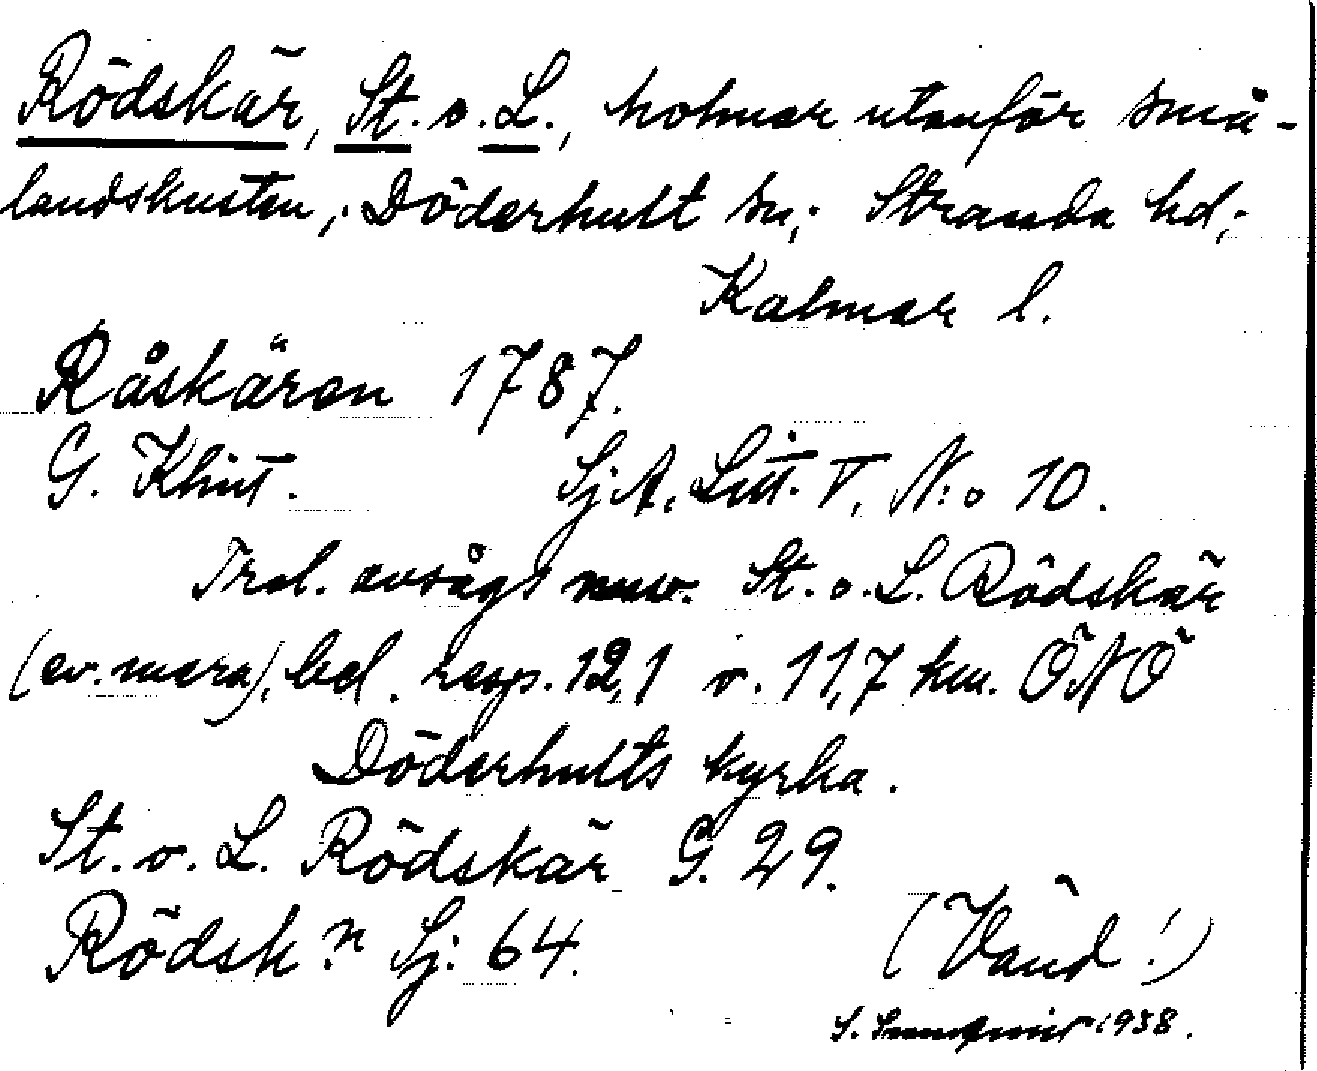 Rödskär, St. o. L., holmar utanför Små-
landskusten; Döderhult sn; Stranda hd;
Kalmar l.
Råskären 1787.
G. Klint. Sj.A. Litt. T, N:o 10.
Trol. avsågs nuv. St. o. L. Rödskär
(ev. mera), bel. resp. 12,1 o. 11,7 km. ÖNÖ
Döderhults kyrka.
St. o. L. Rödskär G. 29.
Rödsk:n Sj: 64.
(Vänd!)
S. 1938.